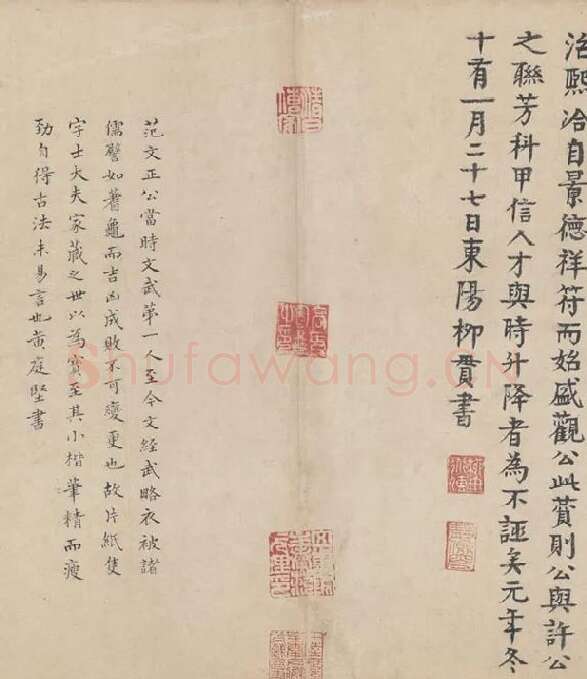 治熙洽自景德祥符而始盛觀公此賛則公與許公
之聯芳科甲信人才與時升降者為不誣矣元年冬
十有一月二十七日東陽柳貫書
范文正公當時文武第一人至今文經武略衣被諸
儒譬如蓍龜而吉凶成敗不可變更也故片紙隻
字士大夫家藏之世以為寳至其小楷筆精而瘦
勁自得古法未易言也黄庭堅書
Shufawang.CN